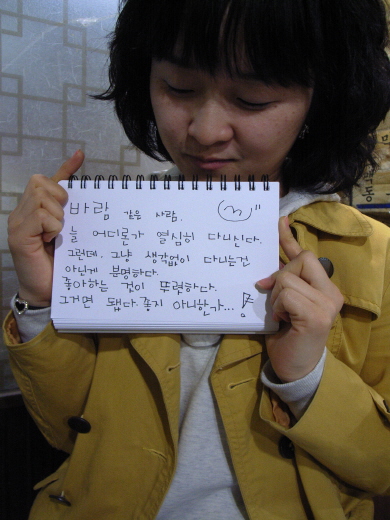 바람 같은 사람.
늘 어디론가 열심히 다니신다.
그런데. 그냥 생각없이 다니는건
아닌게 분명하다.
좋아하는 것이 뚜렷하다.
그거면 됐다. 좋지 아니한가...!